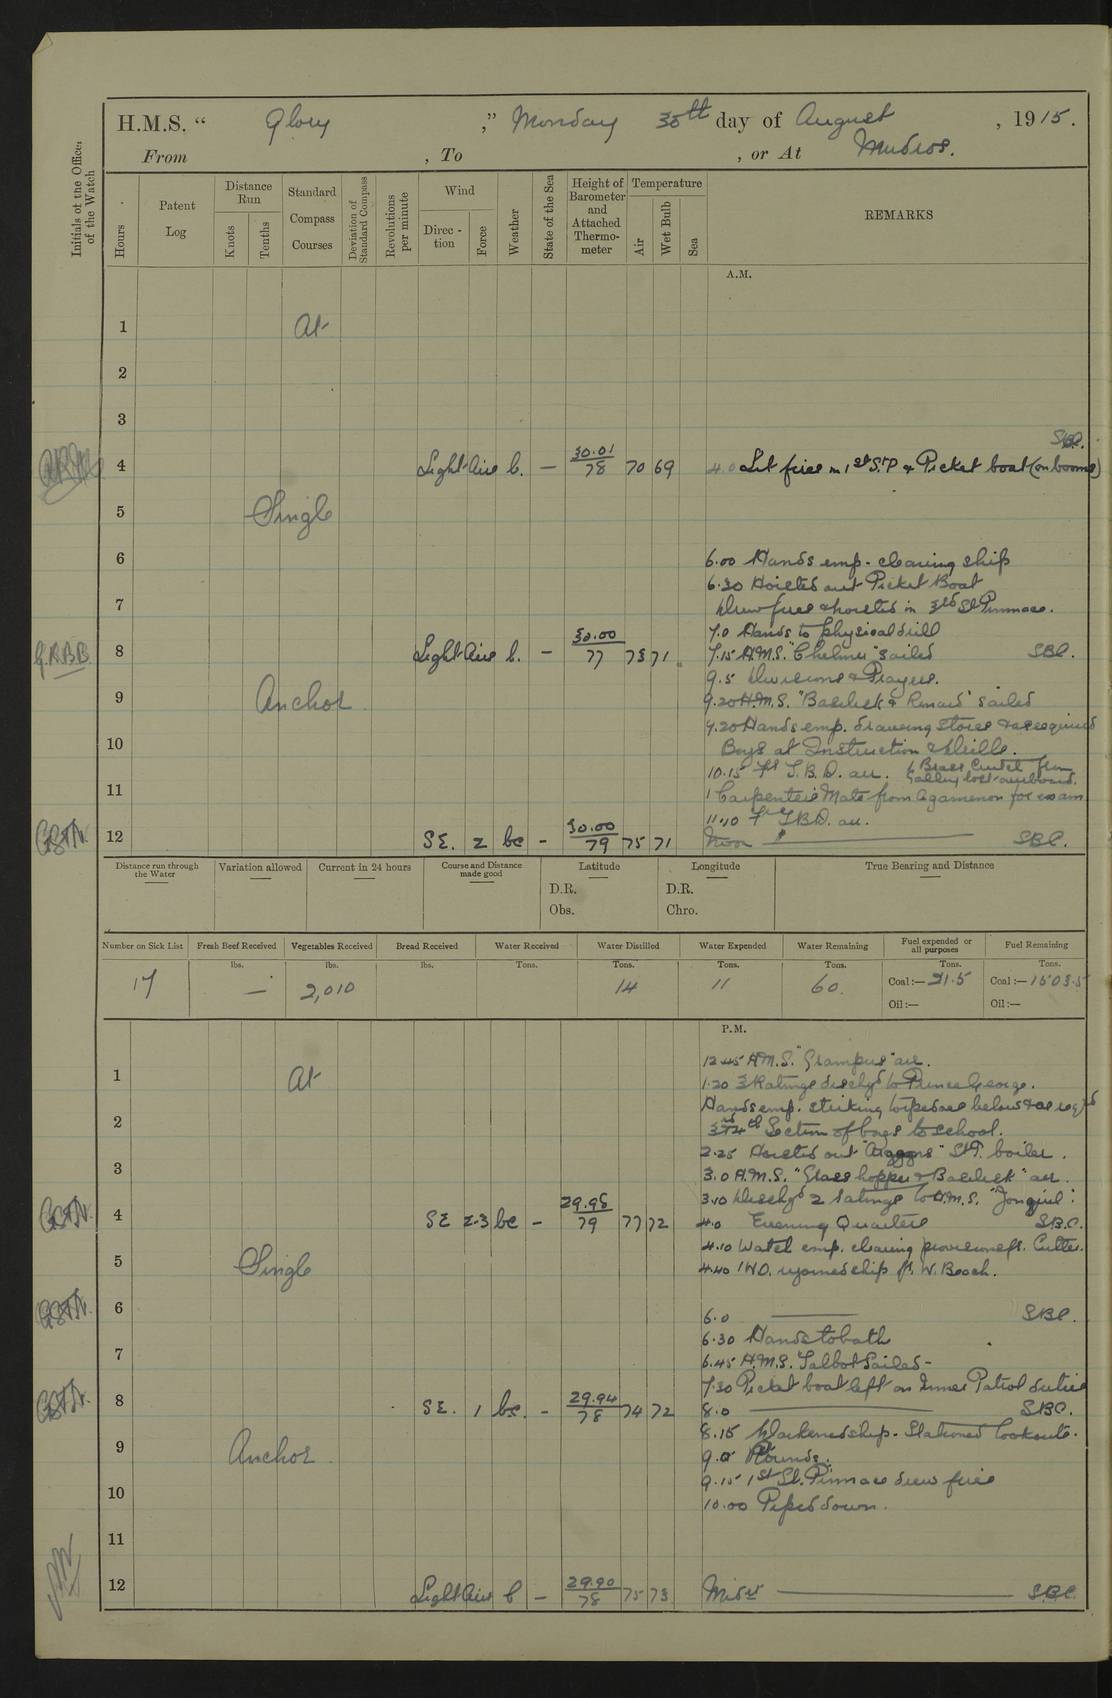 H.M.S. “ Glory ,” Monday 30th day of August , 1915.
From , To , or At Mudros.
Initials of the Officer of the Watch
Hours
Patent Log
Distance Run
Knots
Tenths
Standard Compass Courses
Deviation of Standard Compass
Revolutions per minute
Wind
Direction
Force
Weather
State of the Sea
Height of Barometer and Attached Thermometer
Temperature
Air
Wet Bulb
Sea
REMARKS
A.M.
1 At
2
3
SBC.
4 Light Airs b. — 30.01 78 70 69 4.0 Lit fires in 1st St P & Picket boat (on booms)
5 Single
6 6.00 Hands emp. cleaning ship
6.30 Hoisted out Picket Boat
7 Drew fires & hoisted in 3rd St Pinnace.
7.0 Hands to physical drill
G.R.B.B. 8 Light Airs b. — 30.00 77 73 71 7.15 H.M.S. "Chelmer" sailed SBC.
9.5 Divisions & Prayers.
9 Anchor 9.20 H.M.S. "Basilisk & Renard" sailed
9.20 Hands emp. drawing stores & as required
10 Boys at Instruction & drills.
10.15 Fr T.B.D. arr. 6 Brass Cutel from
galley lost overboard.
11 1 Carpenters Mate from Agamemnon for exam
11.10 Fr TBD. arr.
12 SE. 2 bc - 30.00 79 75 71 Noon SBC.
Distance run through the Water
Variation allowed
Current in 24 hours
Course and Distance made good
Latitude
D.R.
Obs.
Longitude
D.R.
Chro.
True Bearing and Distance
Number on Sick List
Fresh Beef Received
Vegetables Received
Bread Received
Water Received
Water Distilled
Water Expended
Water Remaining
Fuel expended or all purposes
Fuel Remaining
lbs. lbs. lbs. Tons. Tons. Tons. Tons. Tons. Tons.
17 — 2,010 14 11 60. Coal:— 21.5 Coal:— 1503.5
Oil:— Oil:—
P.M.
12.45 H.M.S. "Grampus" arr.
1 At 1.20 3 Ratings dischgd to Prince George.
Hands emp. striking torpedoes below & as reqd
2 3rd & 4th Section of boys to school.
2.25 Hoisted out "Aragons" St P. boiler.
3 3.0 H.M.S. "Grasshopper & Basilisk" arr.
3.10 Dischgd 2 ratings to H.M.S. "Jonquil".
4 SE 2-3 bc - 29.98 79 77 72 4.0 Evening Quarters SBC.
4.10 Watch emp. clearing provisions fr. Cutter.
5 Single 4.40 1 WO. rejoined ship fr. W. Beach.
6 6.0 SBC.
6.30 Hands to bathe
7 6.45 H.M.S. Talbot Sailed -
7.30 Picket boat left on Inner Patrol duties
8 SE. 1 bc. - 29.94 78 74 72 8.0 SBC.
8.15 Darkened ship. Stationed lookouts.
9 Anchor 9.0 Rounds.
9.15 1st St. Pinnace drew fires
10 10.00 Piped down.
11
12 Light Airs b — 29.90 78 75 73 Midt SBC.